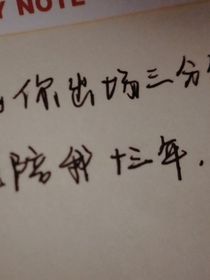 Y NOTE
你出场三分
陪我十三年.